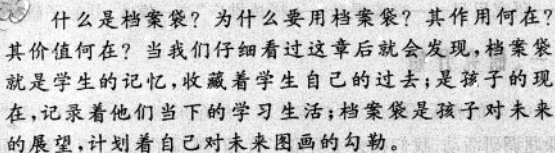 什么是档案袋？为什么要用档案袋？其作用何在？
其价值何在？当我们仔细看过这章后就会发现,档案袋
就是学生的记忆,收藏着学生自己的过去;是孩子的现
在,记录着他们当下的学习生活;档案袋是孩子对未来
的展望,计划着自己对未来图画的勾勒。